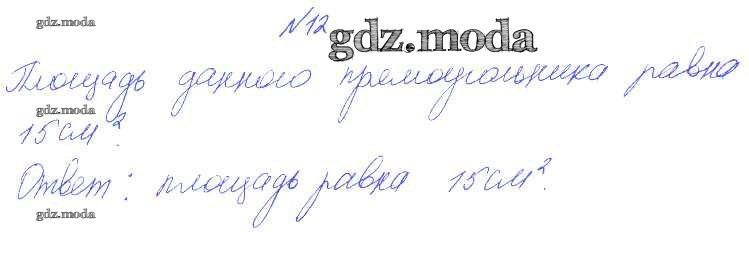 gdz.moda
№12
gdz.moda
Площадь данного прямоугольника равна
gdz.moda
15 см².
Ответ: площадь равна 15 см².
gdz.moda